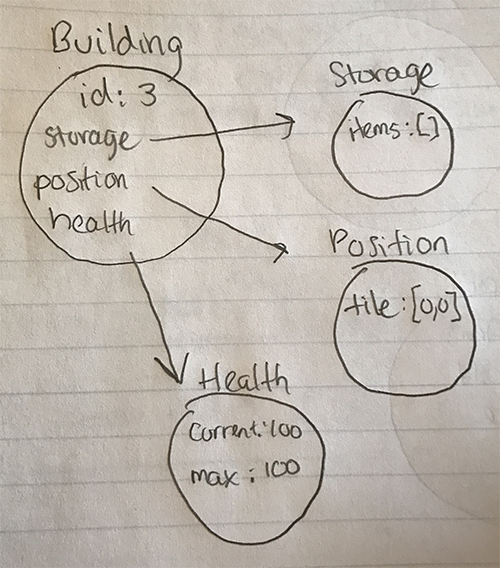 Building
id: 3
storage
position
health
Storage
items:[]
Position
tile:[0,0]
Health
current:100
max:100